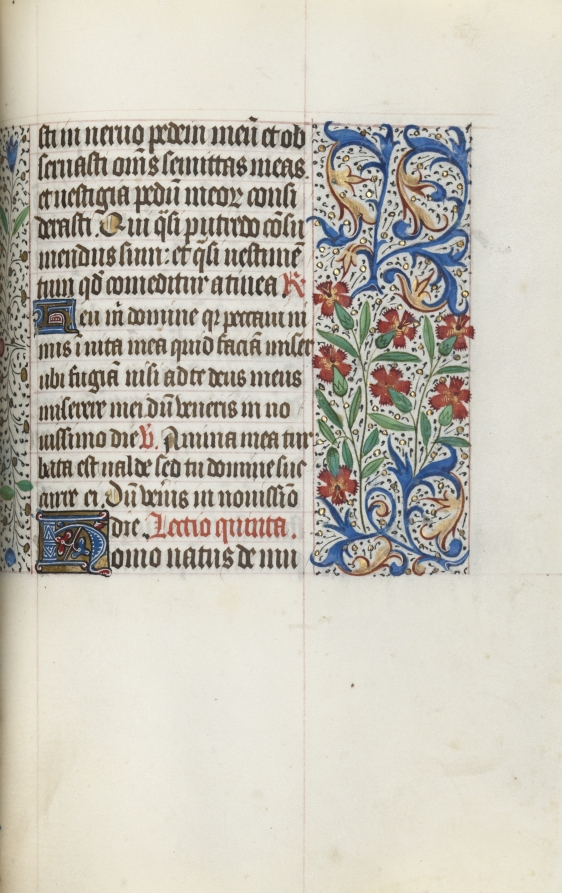 sti in neruo pedem meū et ob
seruasti om̄s semittas meas
et uestigia pedū meoꝝ consi
derasti. Qui q̄si putredo cōsu
mendus sum: et q̄si uestimē
tum qd̄ comeditur a tinea ℟
Heu m̄ domine qꝛ peccaui ni
mis ī uita mea quid faciā miser
ubi fugiā nisi ad te deus meus
miserere mei dū veneris in no
uissimo die ℣. Anima mea tur
bata est ualde sed tu domine suc
curre ei. Dū venis in nouissīo
die. Lectio quinta.
Homo natus de mu